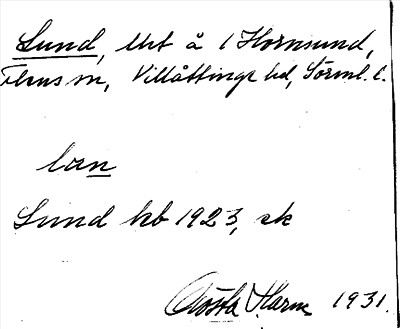 Lund, Utt å 1 Hornsund,
Flens sn, Villåttinge hd, Sörml. l.
lun
Lund kb 1923, ek
Gösta Harne 1931.